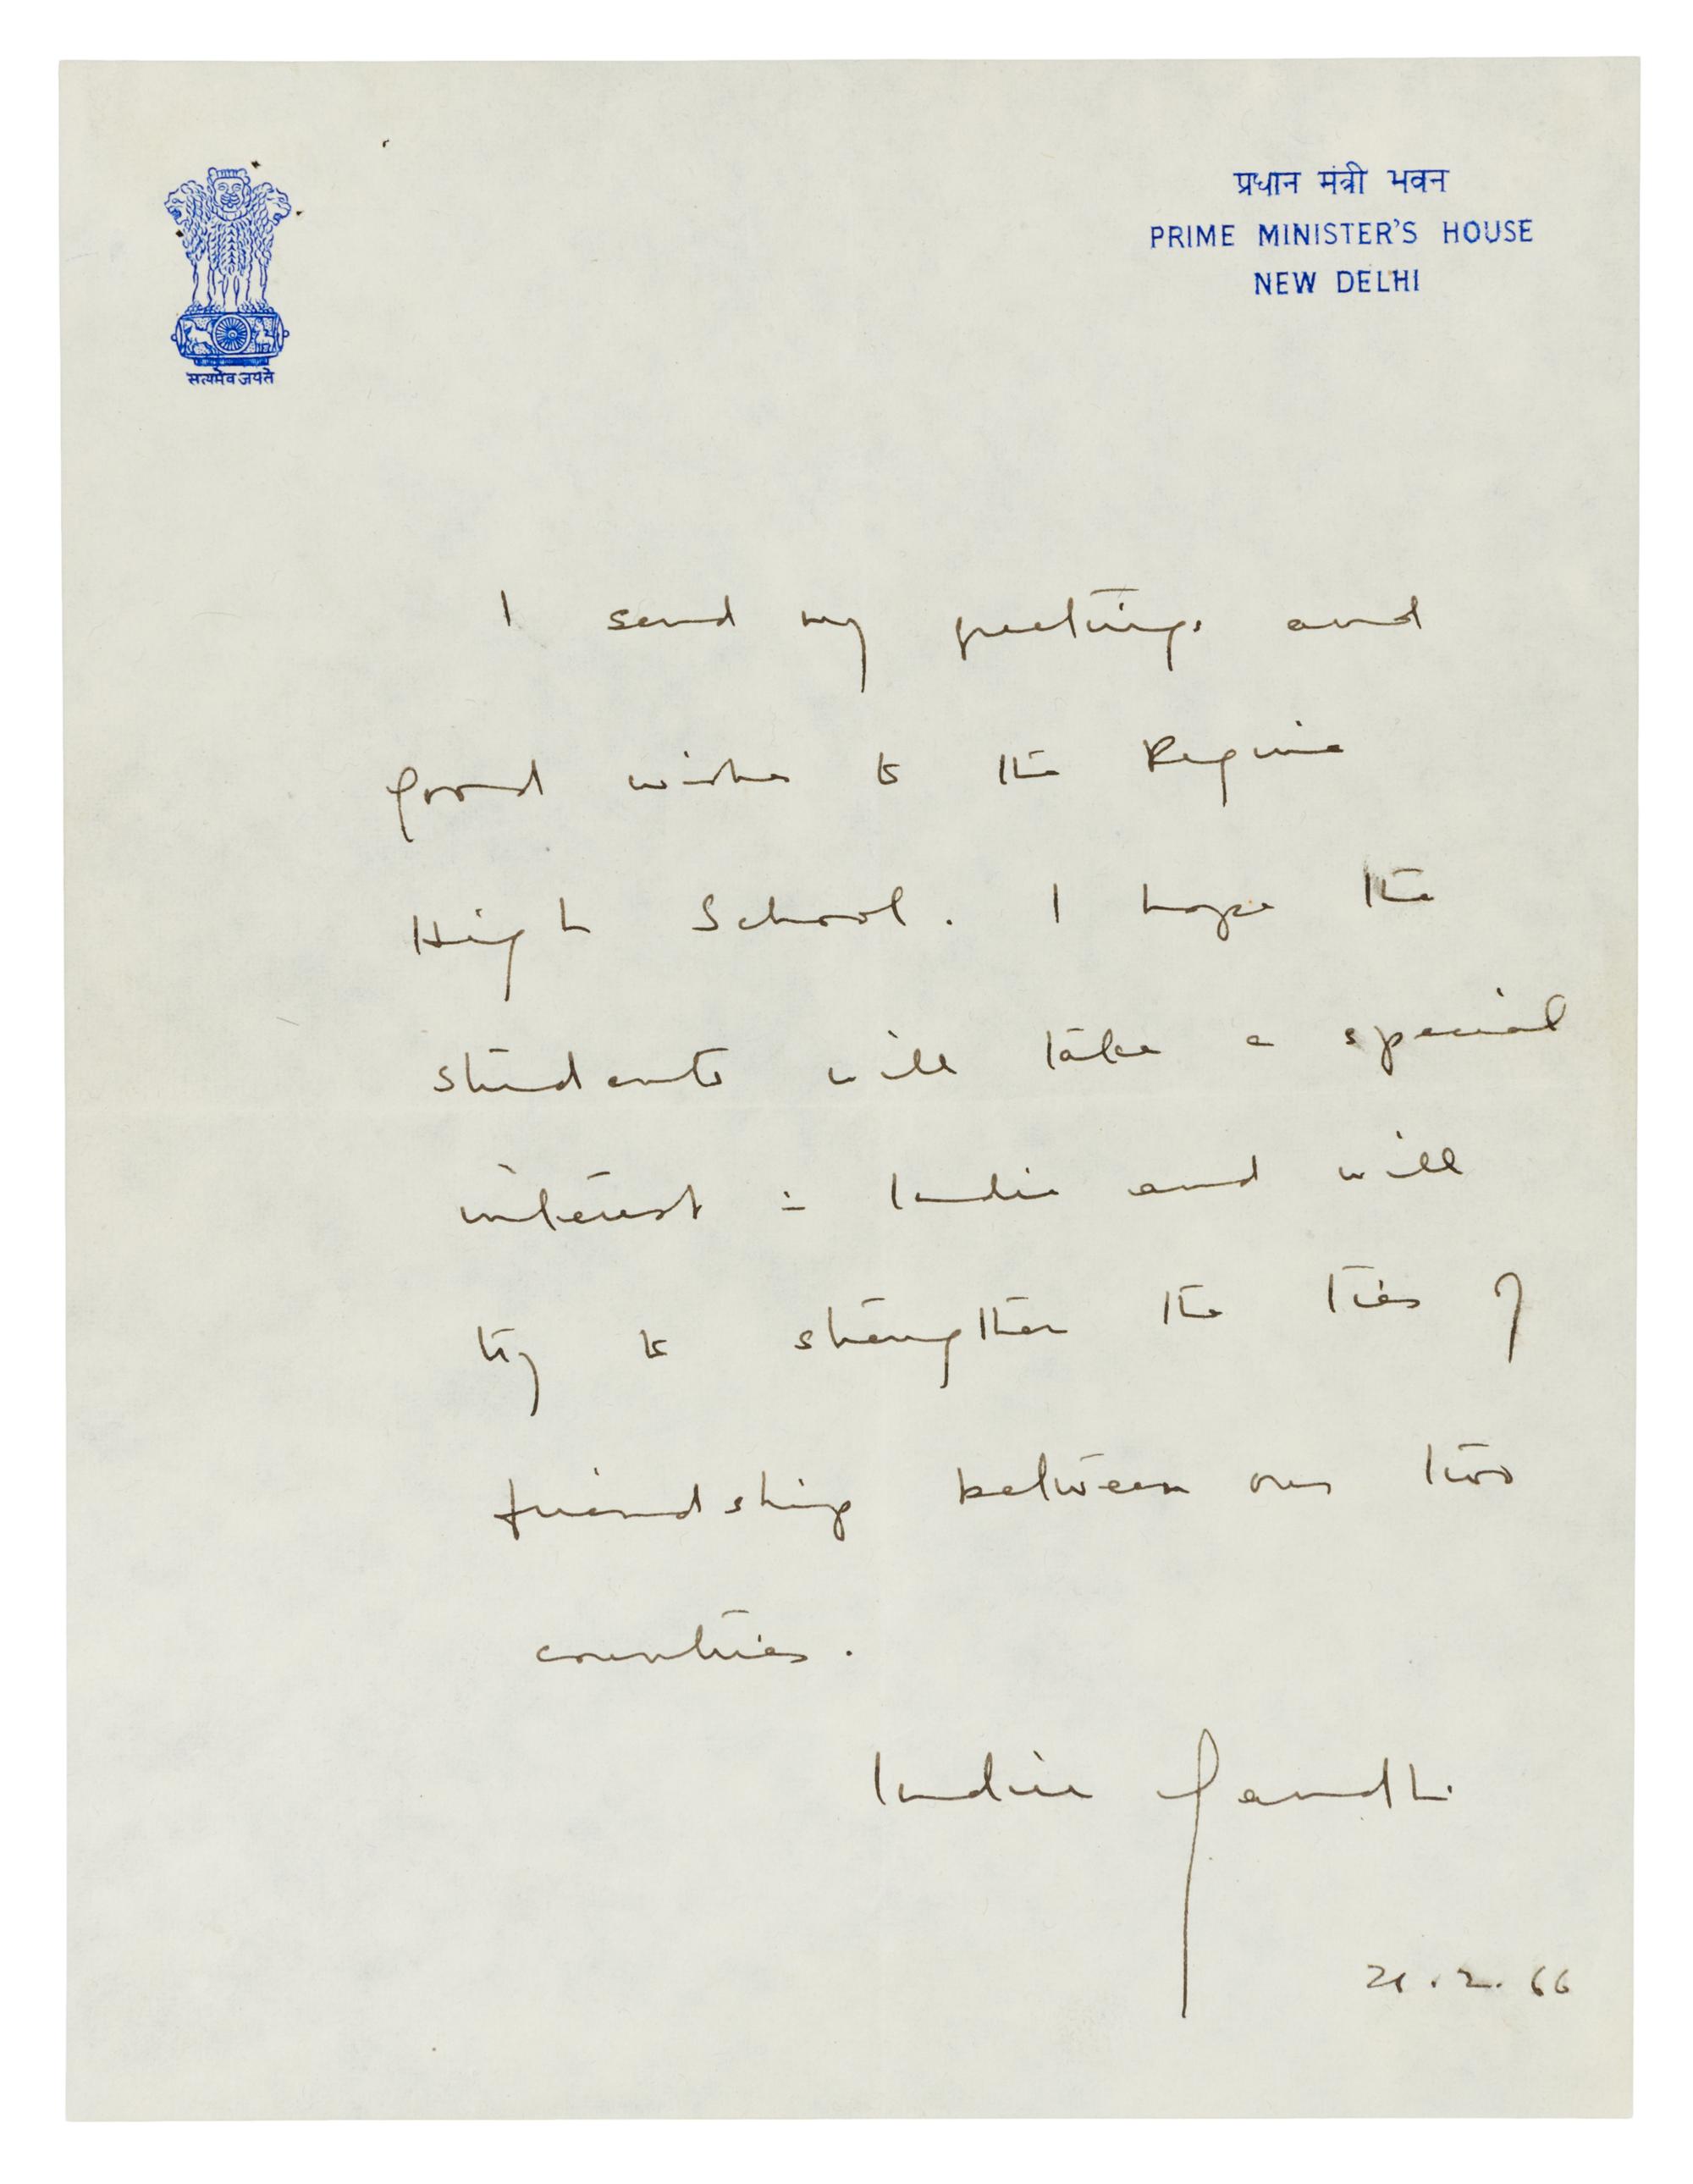 सत्यमेव जयते
प्रधान मंत्री भवन
PRIME MINISTER'S HOUSE
NEW DELHI
I send my greetings and
good wishes to the Regina
High School. I hope the
students will take a special
interest in India and will
try to strengthen the ties of
friendship between our two
countries.
Indira Gandhi
21.2.66